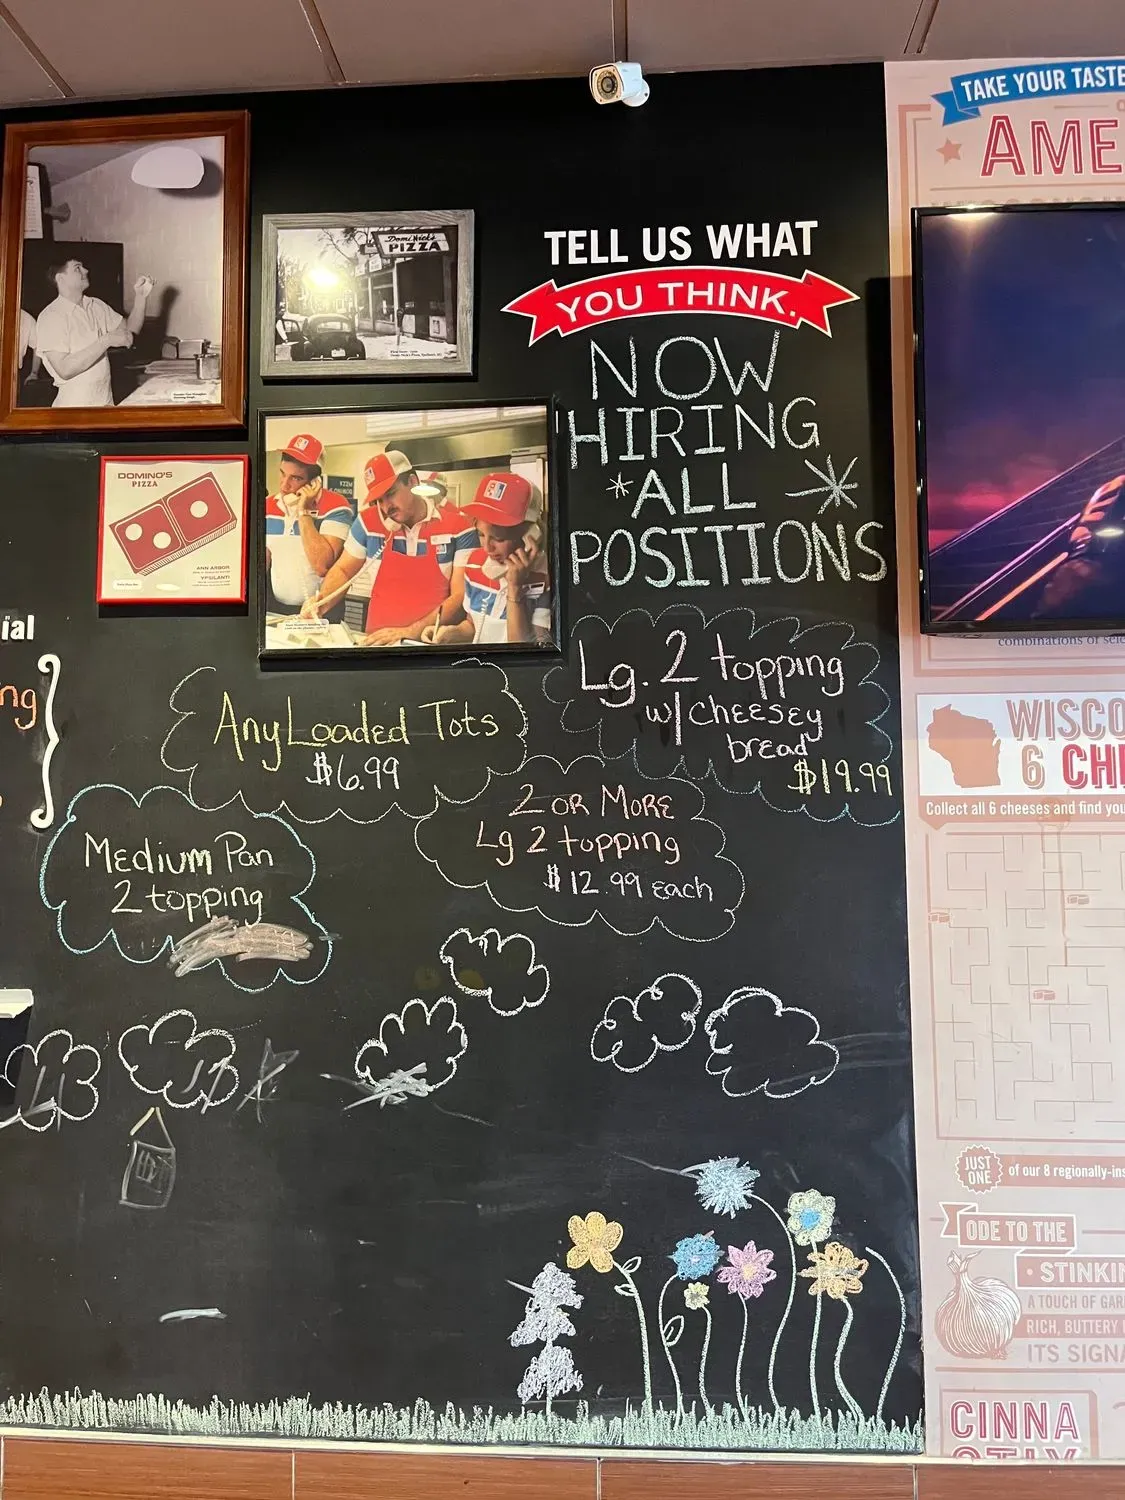 TAKE YOUR TASTE
AME
TELL US WHAT
YOU THINK.
NOW
HIRING
*ALL
POSITIONS
DomiNick's
PIZZA
DOMINO'S
PIZZA
ANN ARBOR
YPSILANTI
ial
ng
Any Loaded Tots
$6.99
Lg. 2 topping
w/ cheesey
bread
$19.99
2 or More
Lg 2 topping
$12.99 each
Medium Pan
2 topping
combinations of
WISCO
6 CH
Collect all 6 cheeses and find you
JUST
ONE
of our 8 regionally-ins
ODE TO THE
• STINKIN
A TOUCH OF GAR
RICH, BUTTERY
ITS SIGNA
CINNA